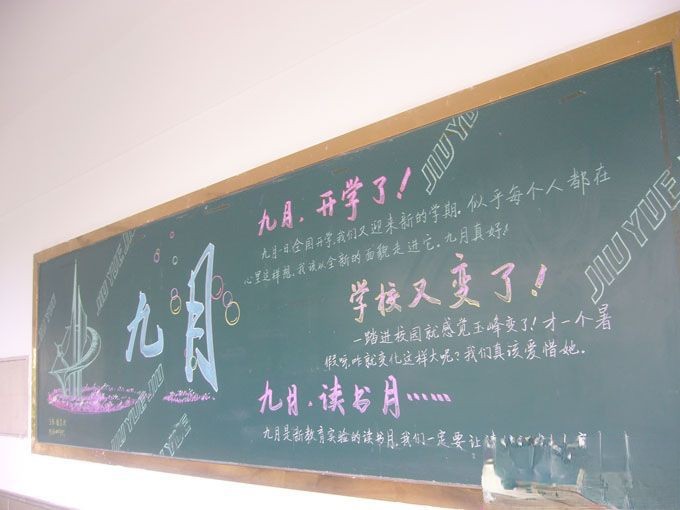 JIU YUE
JIU YUE
JIU YUE
JIU YUE
九月
九月，开学了！
九月一日全国开学，我们又迎来新的学期。似乎每个人都在
心里这样想，我该以全新的面貌走进它。九月真好！
学校又变了！
一踏进校园就感觉玉峰变了！才一个暑
假呀，咋就变化这样大呢？我们真该爱惜她。
九月，读书月……
九月是新教育实验的读书月，我们一定要让